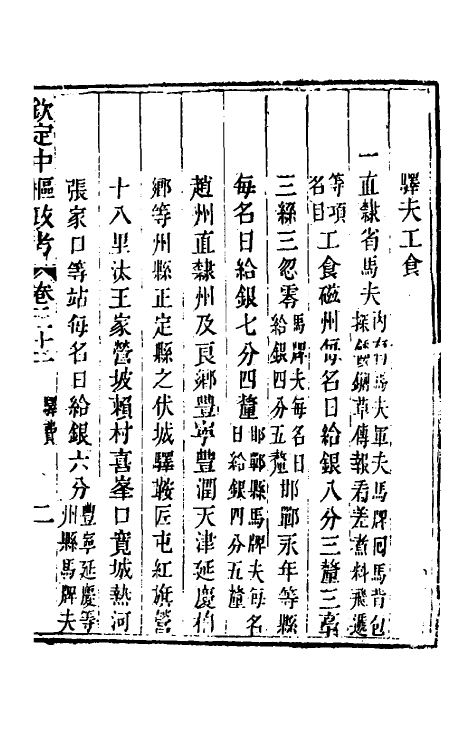 驛夫工食
一直隸省馬夫內有馬夫軍夫馬牌同馬背包
探儀鍘草傳報看差煮料飛遞
等項
名目工食磁州每名日給銀八分三釐三毫
三絲三忽零馬牌夫每名日
給銀四分五釐邯鄲永年等縣
每名日給銀七分四釐邯鄲縣馬牌夫每名
日給銀四分五釐
趙州直隸州及良鄉豐寧豐潤天津延慶栢
鄉等州縣正定縣之伏城驛鞍匠屯紅旗營
十八里汰王家營坡賴村喜峯口寬城熱河
張家口等站每名日給銀六分豐寧延慶等
州縣馬牌夫
欽定中樞政考 卷三十二 驛費 二